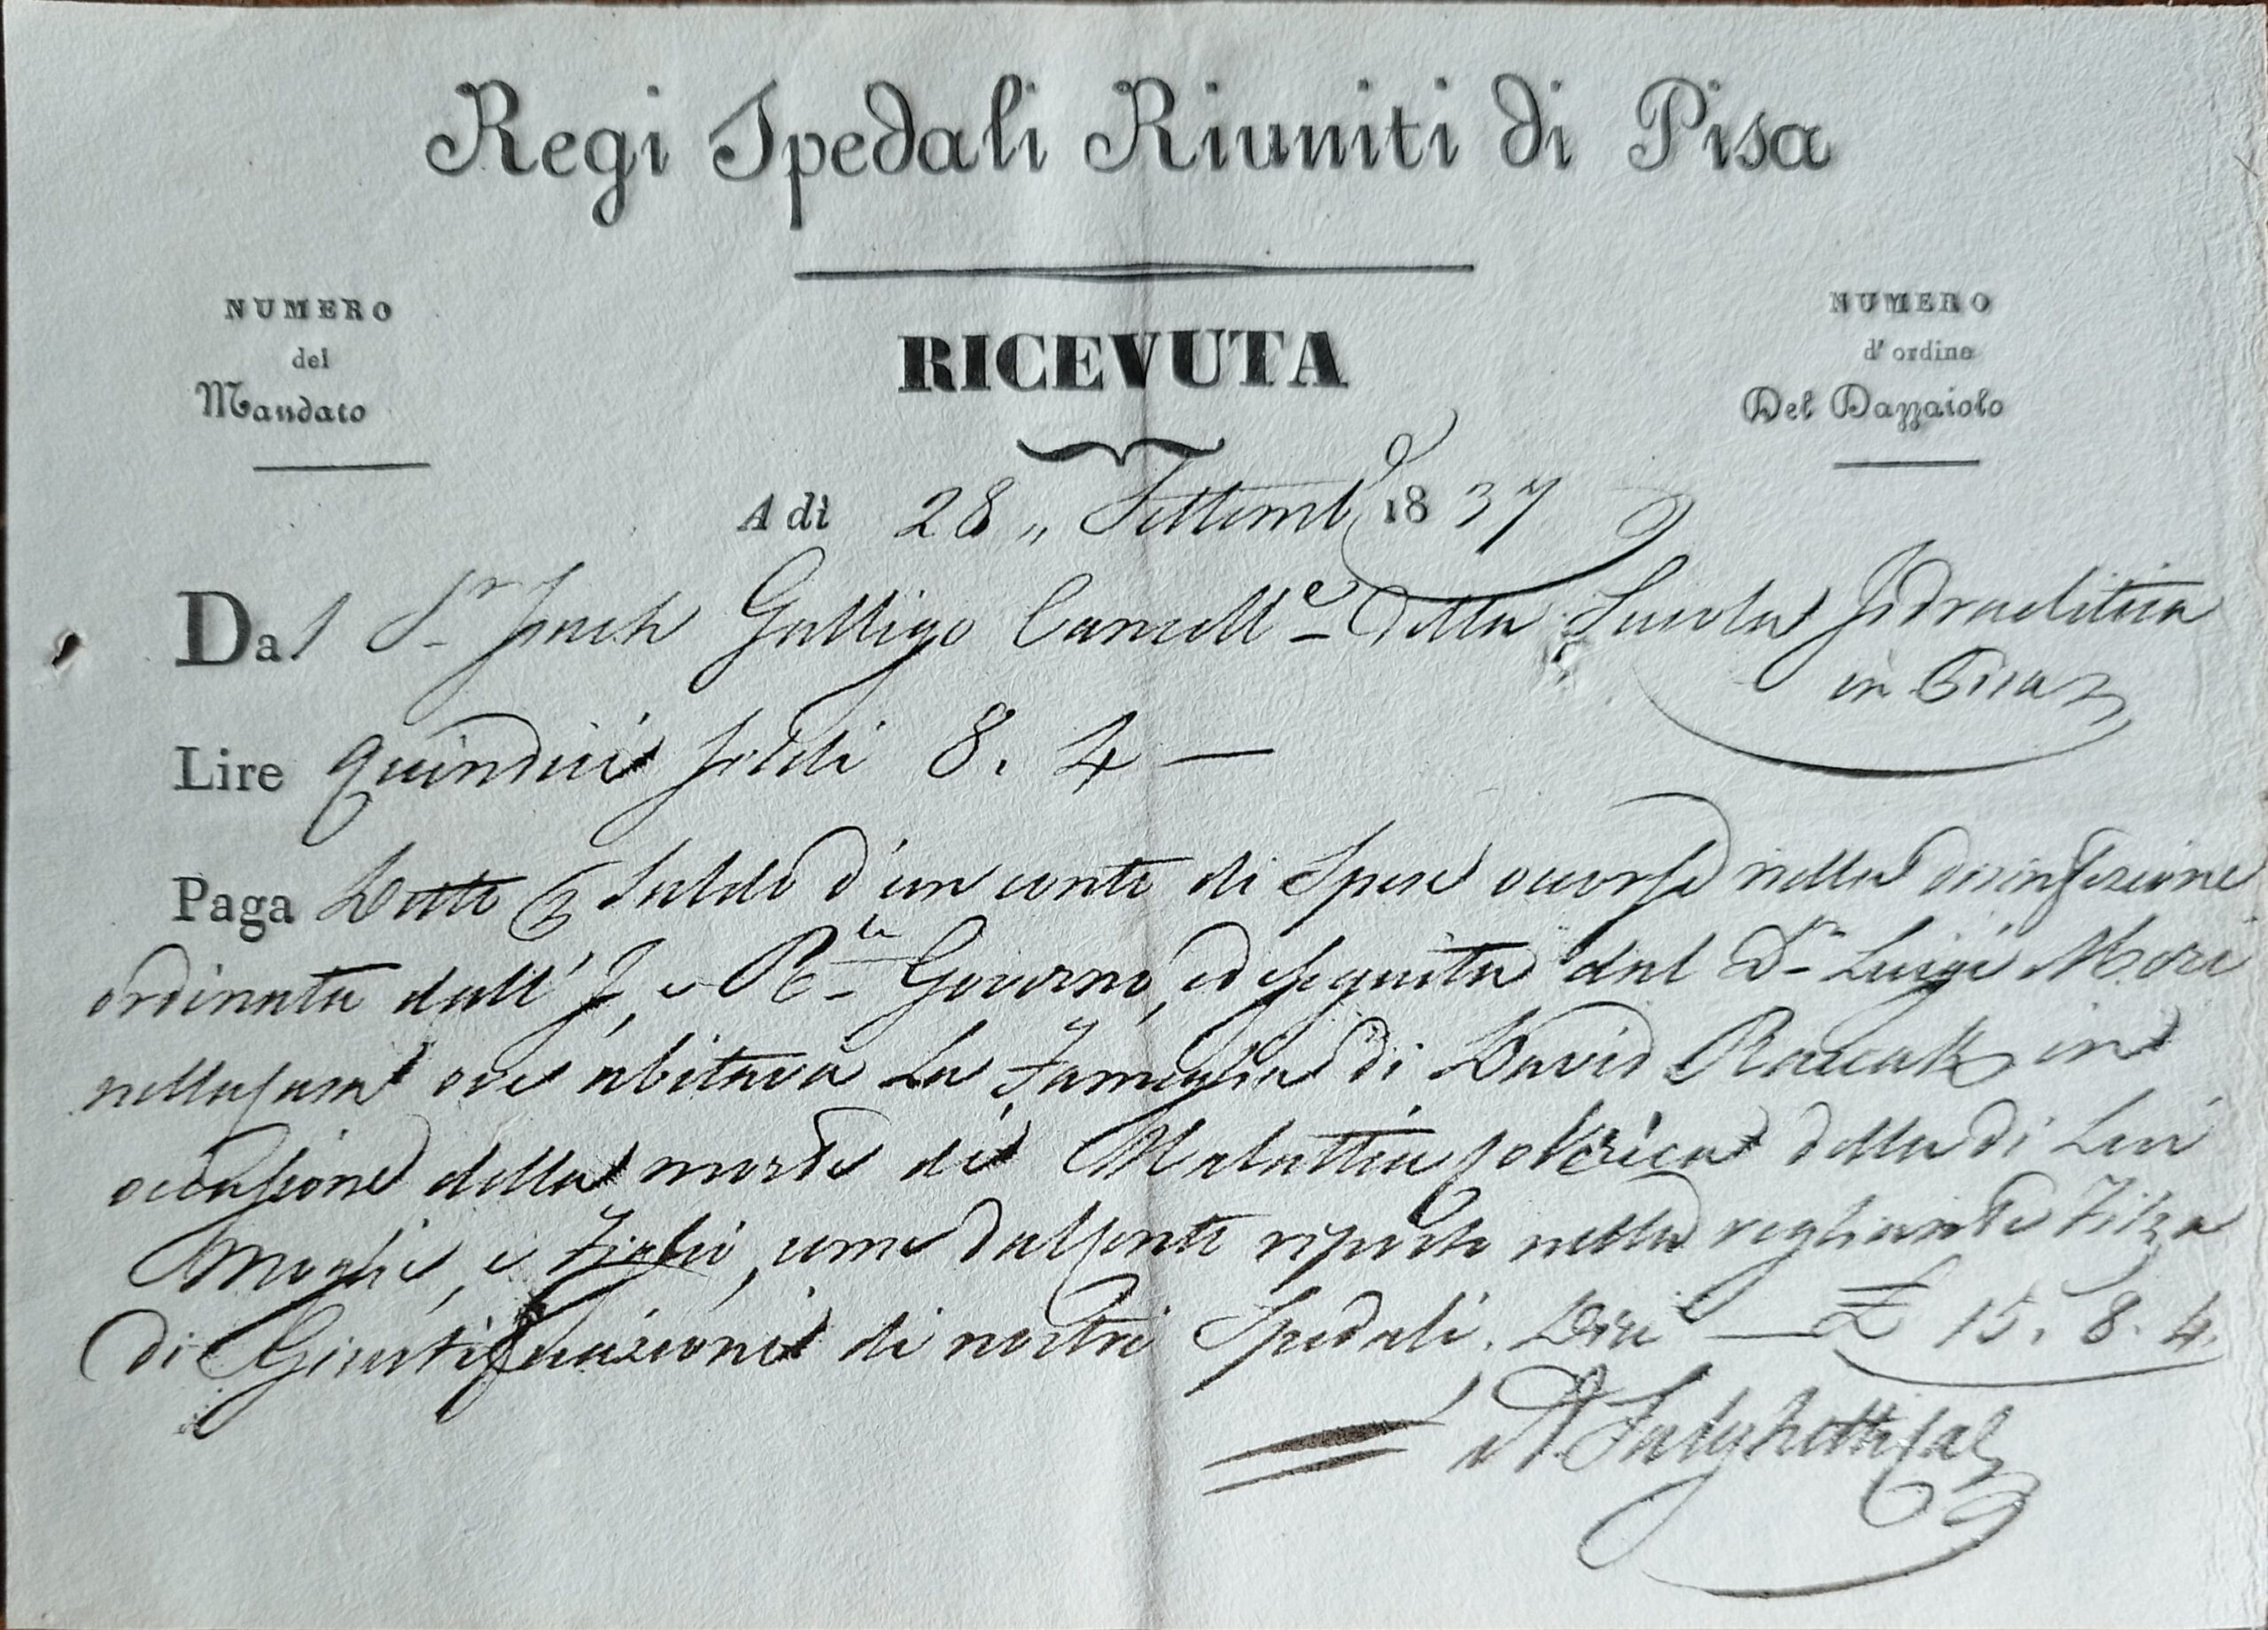 Regi Spedali Riuniti di Pisa
NUMERO
del
Mandato
RICEVUTA
NUMERO
d'ordine
Del Dazzaiolo
A dì 28 „ Settemb 1837
Dal Sr Galligo Cancelle della Scuola Isdraelitica
in Pisa
Lire quindici soldi 8. 4 —
Paga Detti Saldo d'un conto di Spese occorse nella disinfezione
ordinata dall' I. e R. Governo, ed eseguita dal Dr Luigi Mori
nella casa ove abitava La Famiglia di David in
occasione della morte di Malattia colerica della di Lui
Moglie, e Figlio, come dal conto riposto nella vegliante Filza
di Giustificazioni di nostri Spedali. Dico — £ 15. 8. 4.